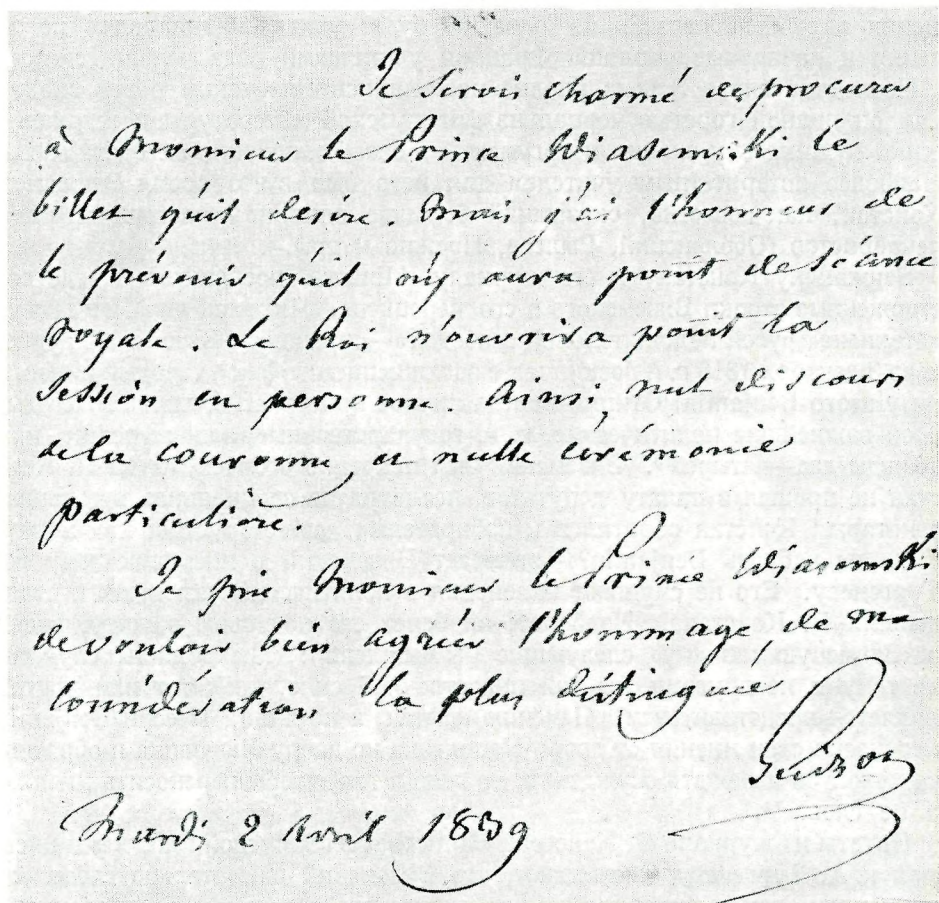 Je serois charmé de procurer
à Monsieur le Prince Wiasemski le
billet qu'il desire. Mais j'ai l'honneur de
le prévenir qu'il n'y aura point de séance
royale. Le Roi n'ouvrira point la
session en personne. Ainsi, nul discours
de la couronne, et nulle cérémonie
particulière.
Je prie Monsieur le Prince Wiasemski
de vouloir bien agréer l'hommage de ma
considération la plus distinguée,
Guizot
Mardi 2 Avril 1839